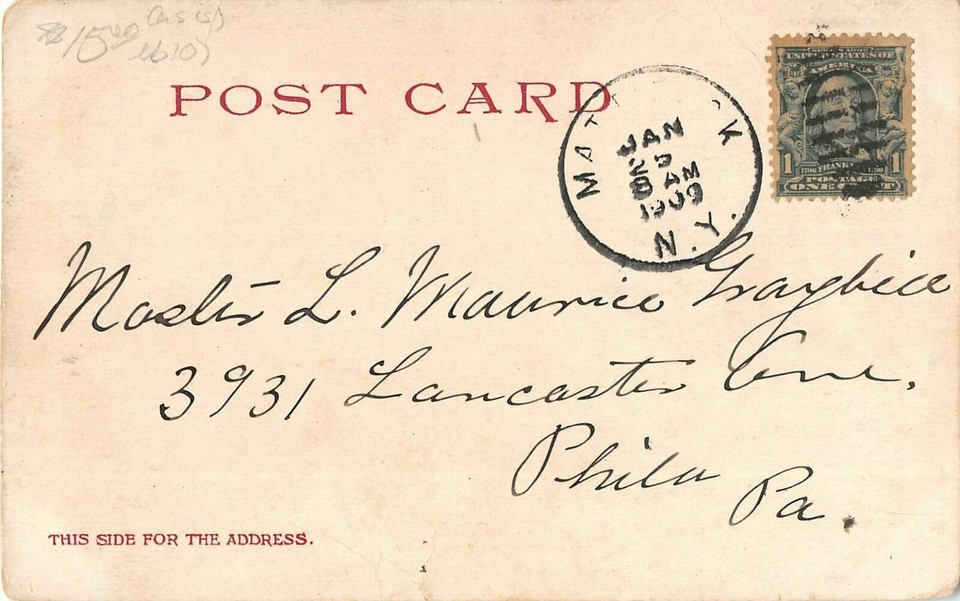 $15
POST CARD
MAT CK
JAN
25
8 AM
1909
N.Y.
UNITED STATES OF
AMERICA
1 FRANKLIN 1
POSTAGE
ONE CENT
Master L. Maurice Graybill
3931 Lancaster Ave.
Phila
Pa.
THIS SIDE FOR THE ADDRESS.